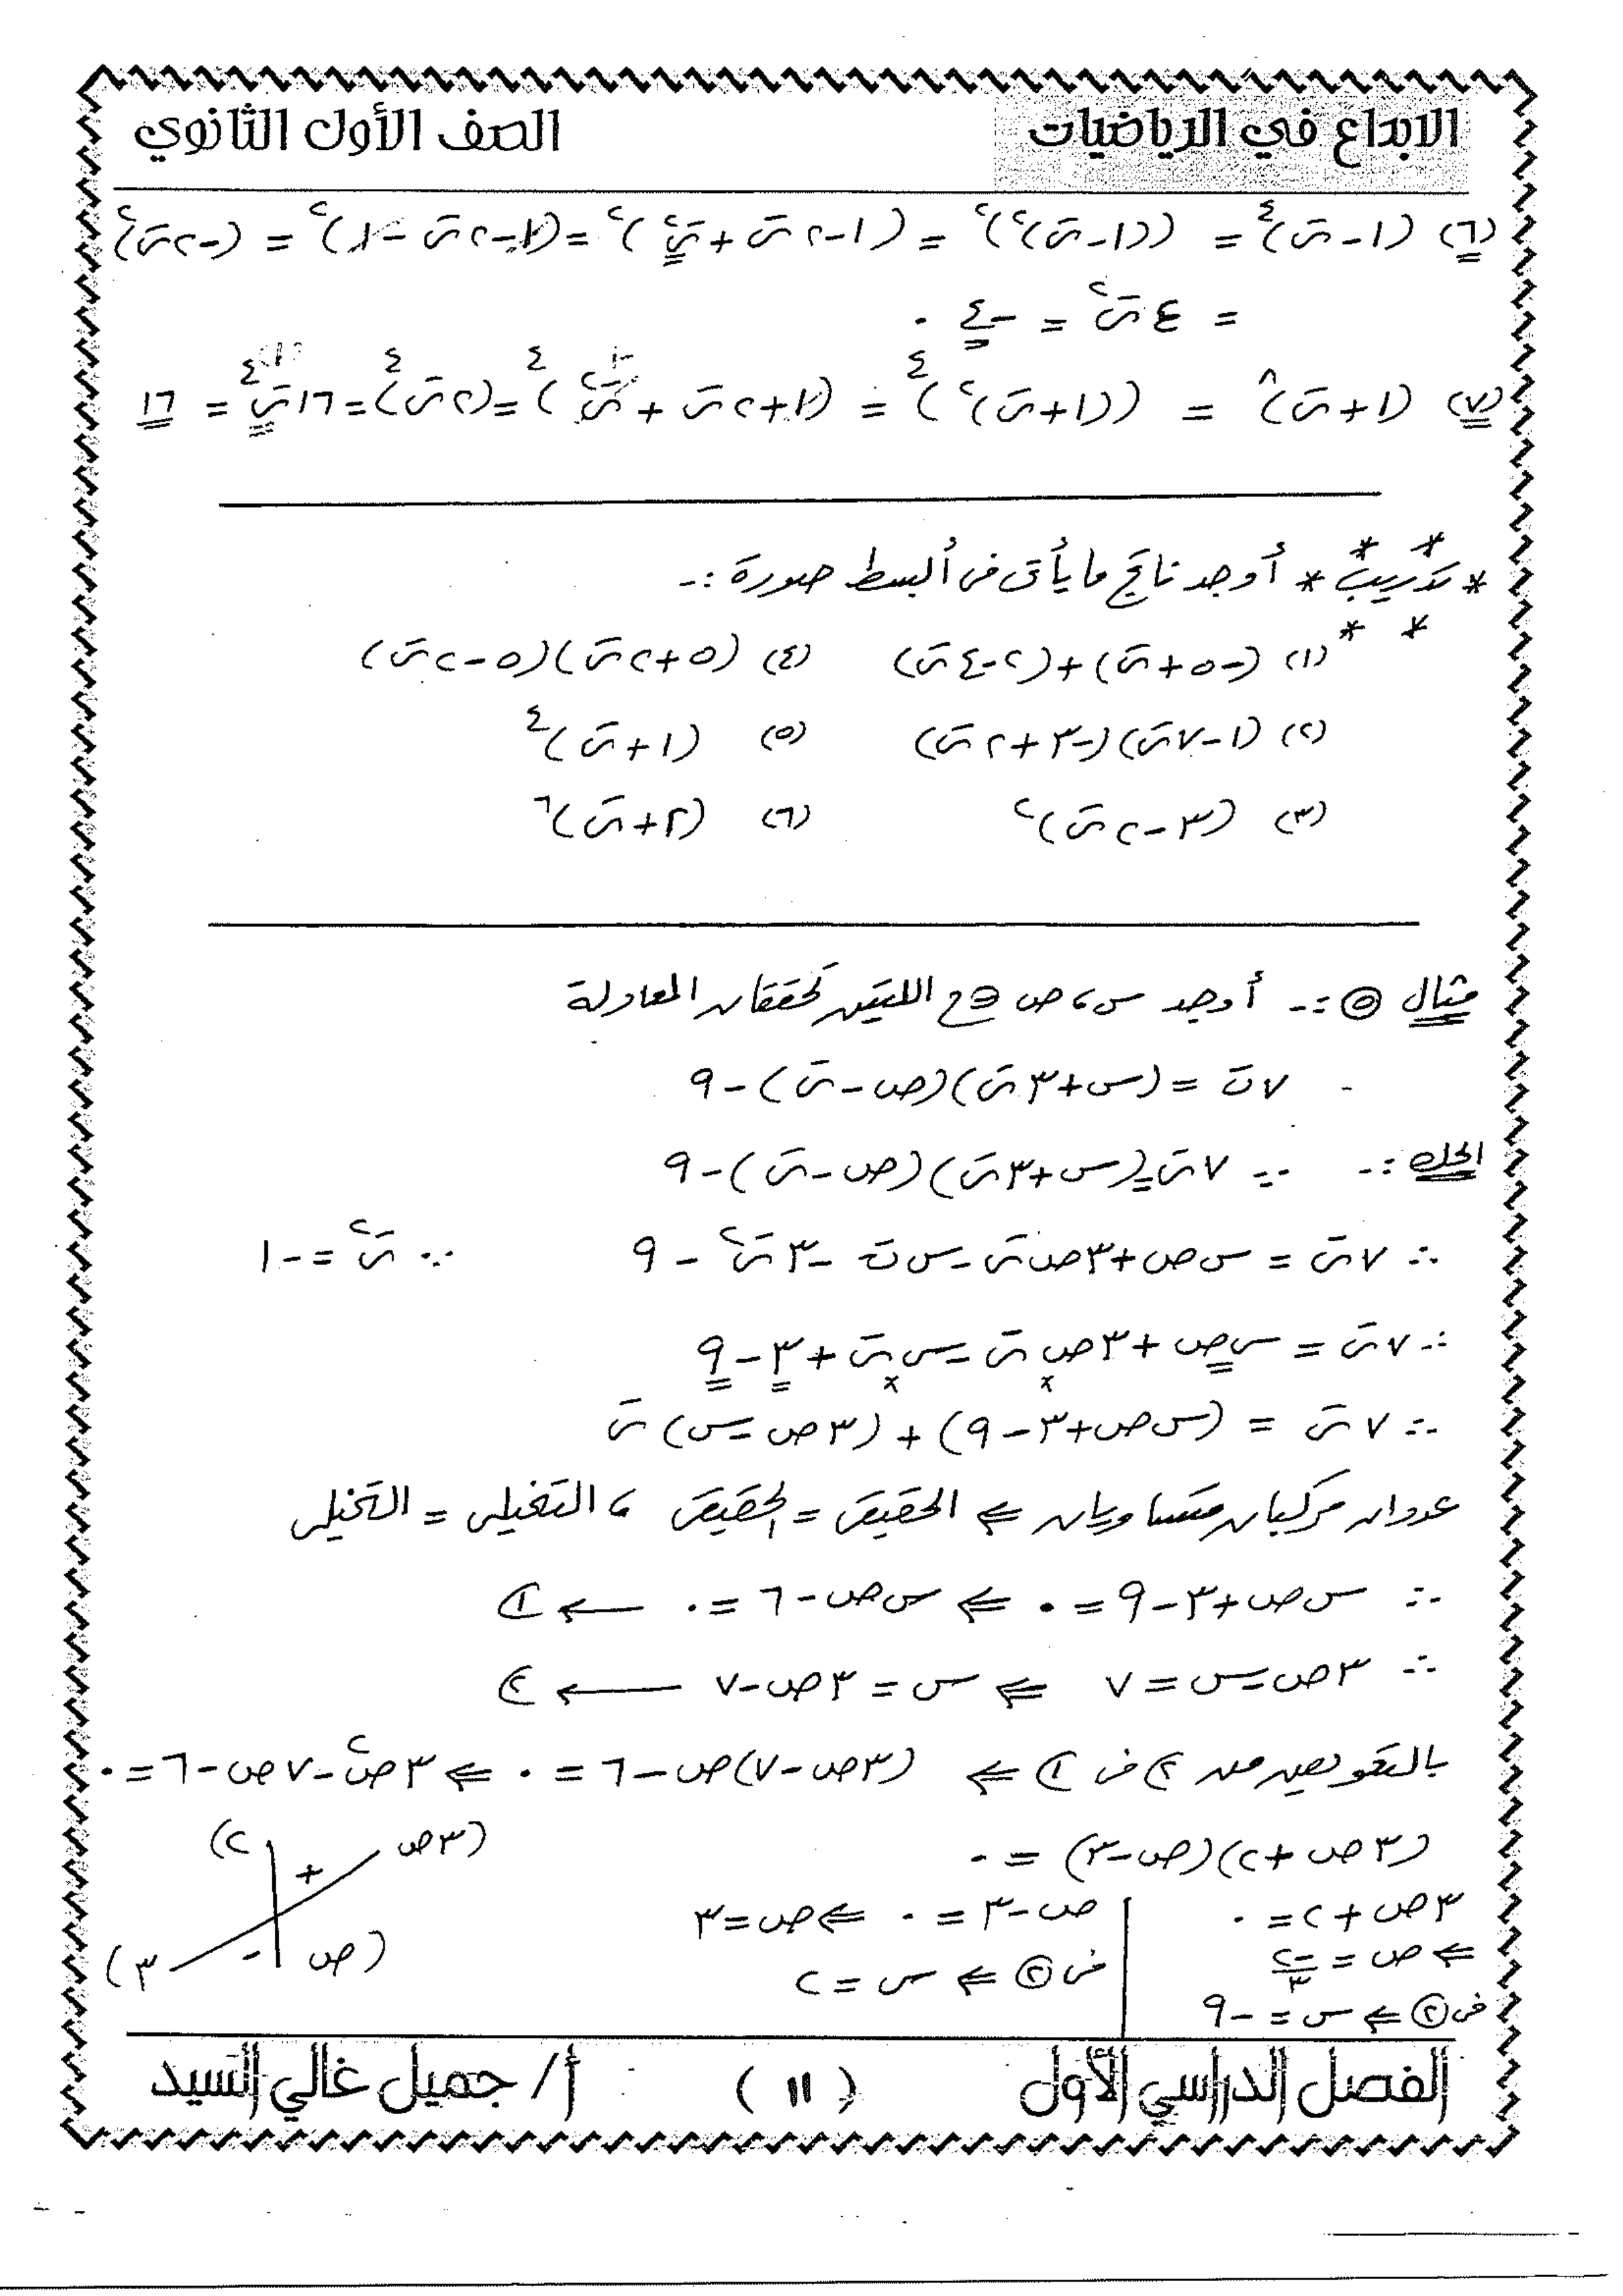 الابداع في الرياضيات
الصف الأول الثانوي
(٦) (١-ت)^٤ = ((١-ت)^٢)^٢ = (١-٢ت+ت^٢)^٢ = (١-٢ت-١)^٢ = (-٢ت)^٢
= ٤ت^٢ = -٤ .
(٧) (١+ت)^٨ = ((١+ت)^٢)^٤ = (١+٢ت+ت^٢)^٤ = (٢ت)^٤ = ١٦ت^٤ = ١٦
* تدريب * أوجد ناتج ما يأتى فى أبسط صورة :-
(١) (-٥+ت)+(٢-٤ت) (٤) (٥+٢ت)(٥-٢ت)
(٢) (١-٧ت)(-٣+٢ت) (٥) (١+ت)^٤
(٣) (٣-٢ت)^٢ (٦) (٢+ت)^٦
مثال ٥ :- أوجد س، ص ∈ ح اللتين تحققان المعادلة
٧ت = (س+٣ت)(ص-ت)-٩
الحل :- ∵ ٧ت = (س+٣ت)(ص-ت)-٩
∴ ٧ت = س ص+٣ص ت-س ت -٣ت^٢ -٩ ∵ ت^٢ = -١
∴ ٧ت = س ص+٣ص ت-س ت+٣-٩
∴ ٧ت = (س ص+٣-٩)+(٣ص-س)ت
عددان مركبان متساويان ⇐ الحقيقى = الحقيقى ، التخيلى = التخيلى
∴ س ص+٣-٩=٠ ⇐ س ص-٦=٠ ← ١
∴ ٣ص-س=٧ ⇐ س=٣ص-٧ ← ٢
بالتعويض من ٢ فى ١ ⇐ (٣ص-٧)ص-٦=٠ ⇐ ٣ص^٢-٧ص-٦=٠
(٣ص+٢)(ص-٣)=٠
(٣ص ٢)
+
٣ص+٢=٠ ص-٣=٠ ⇐ ص=٣
(ص - ٣)
⇐ ص = -٢/٣ فى ٢ ⇐ س=٢
فى ٢ ⇐ س=-٩
الفصل الدراسي الأول
( ١١ )
أ/ جميل غالي السيد